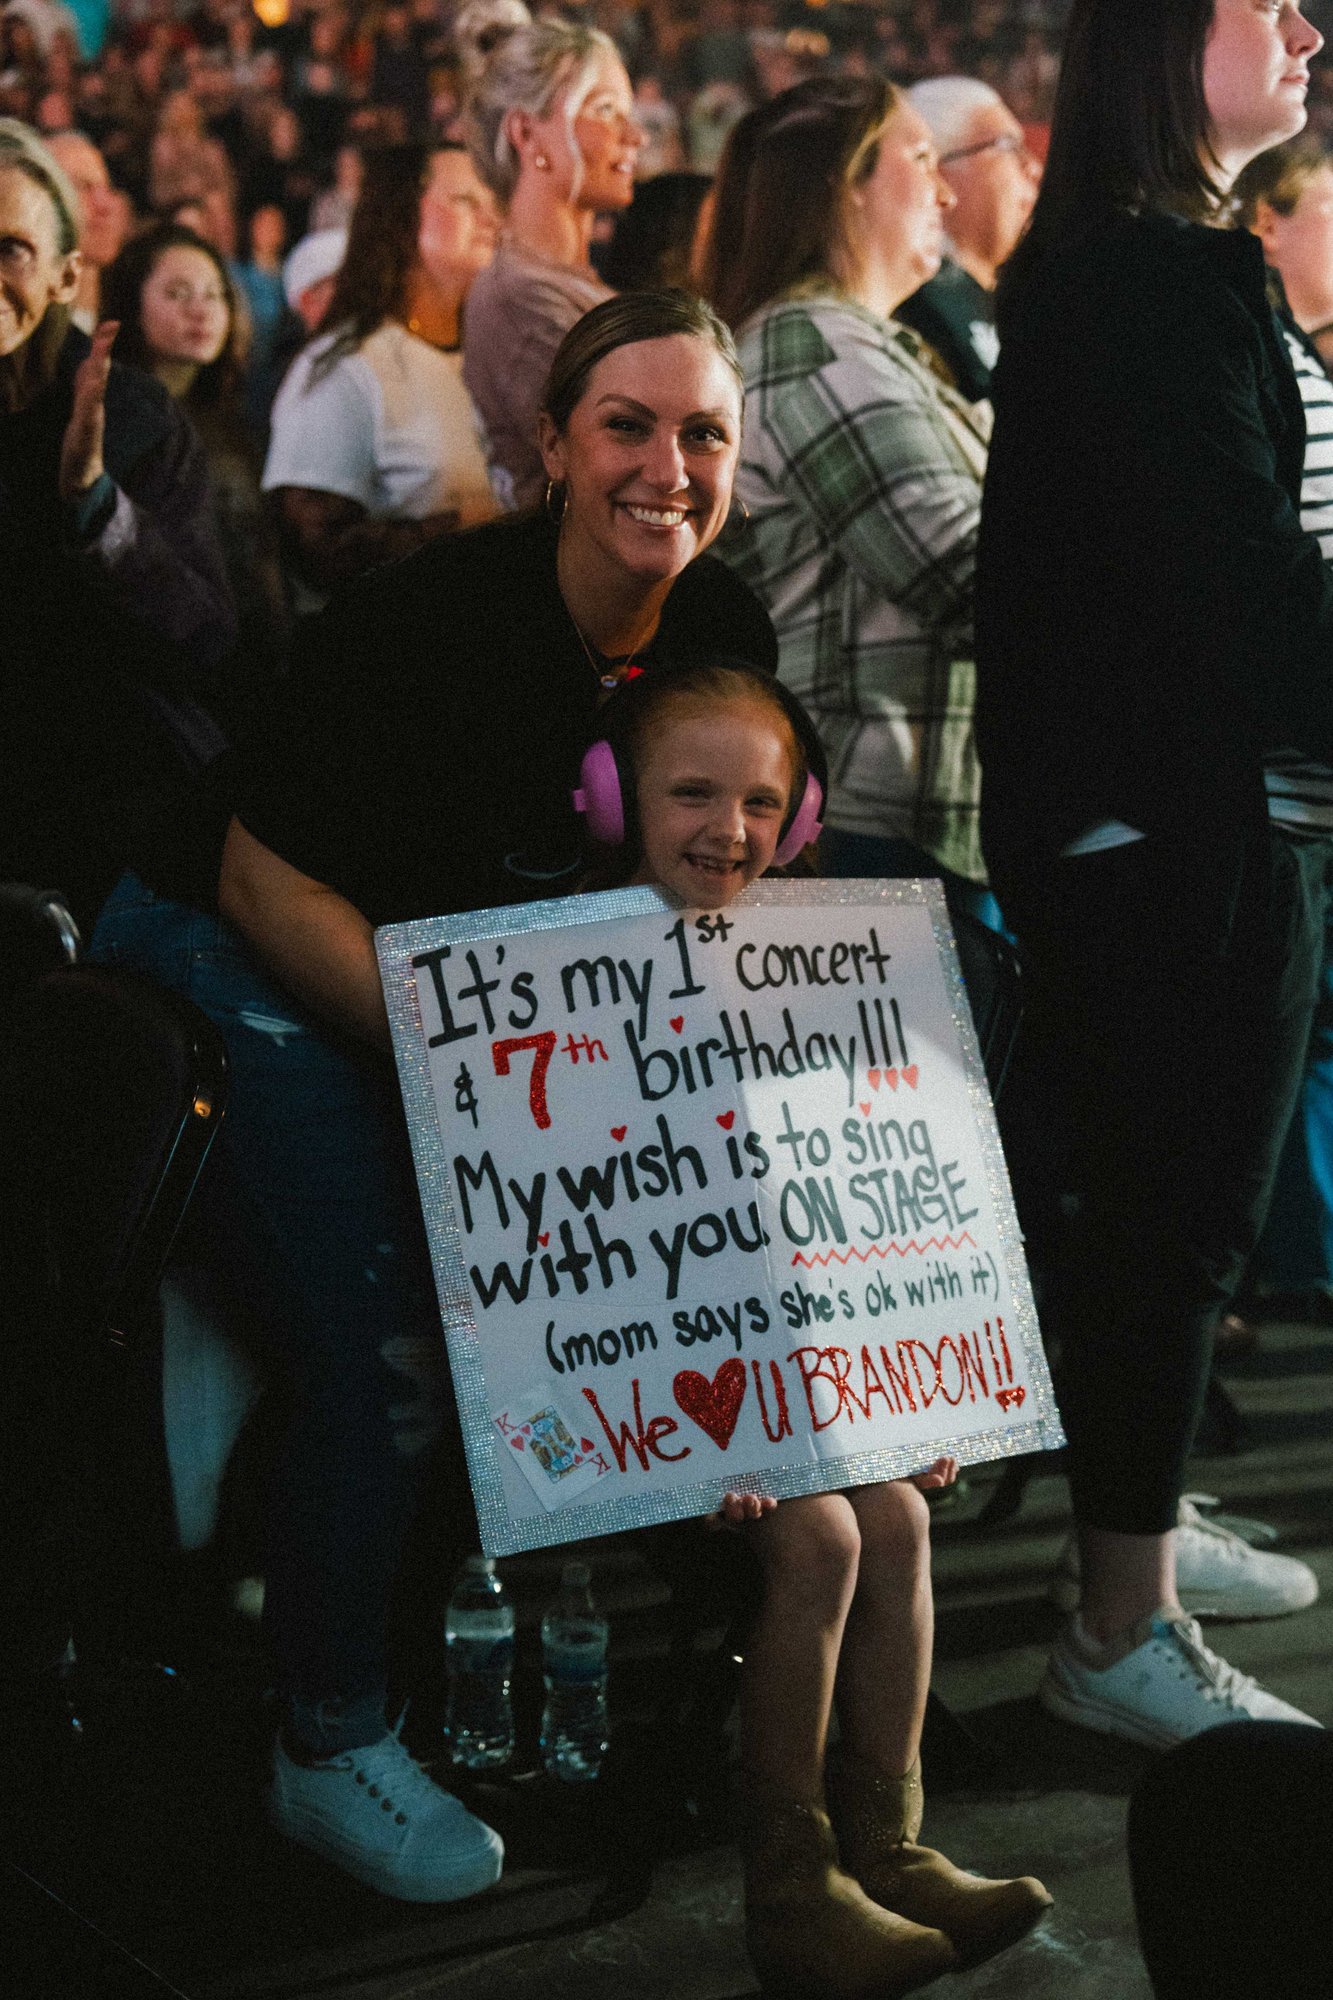 It's my 1st concert
& 7th birthday!!!
My wish is to sing
with you ON STAGE
(mom says she's ok with it)
We ♥ U BRANDON!!
K
K